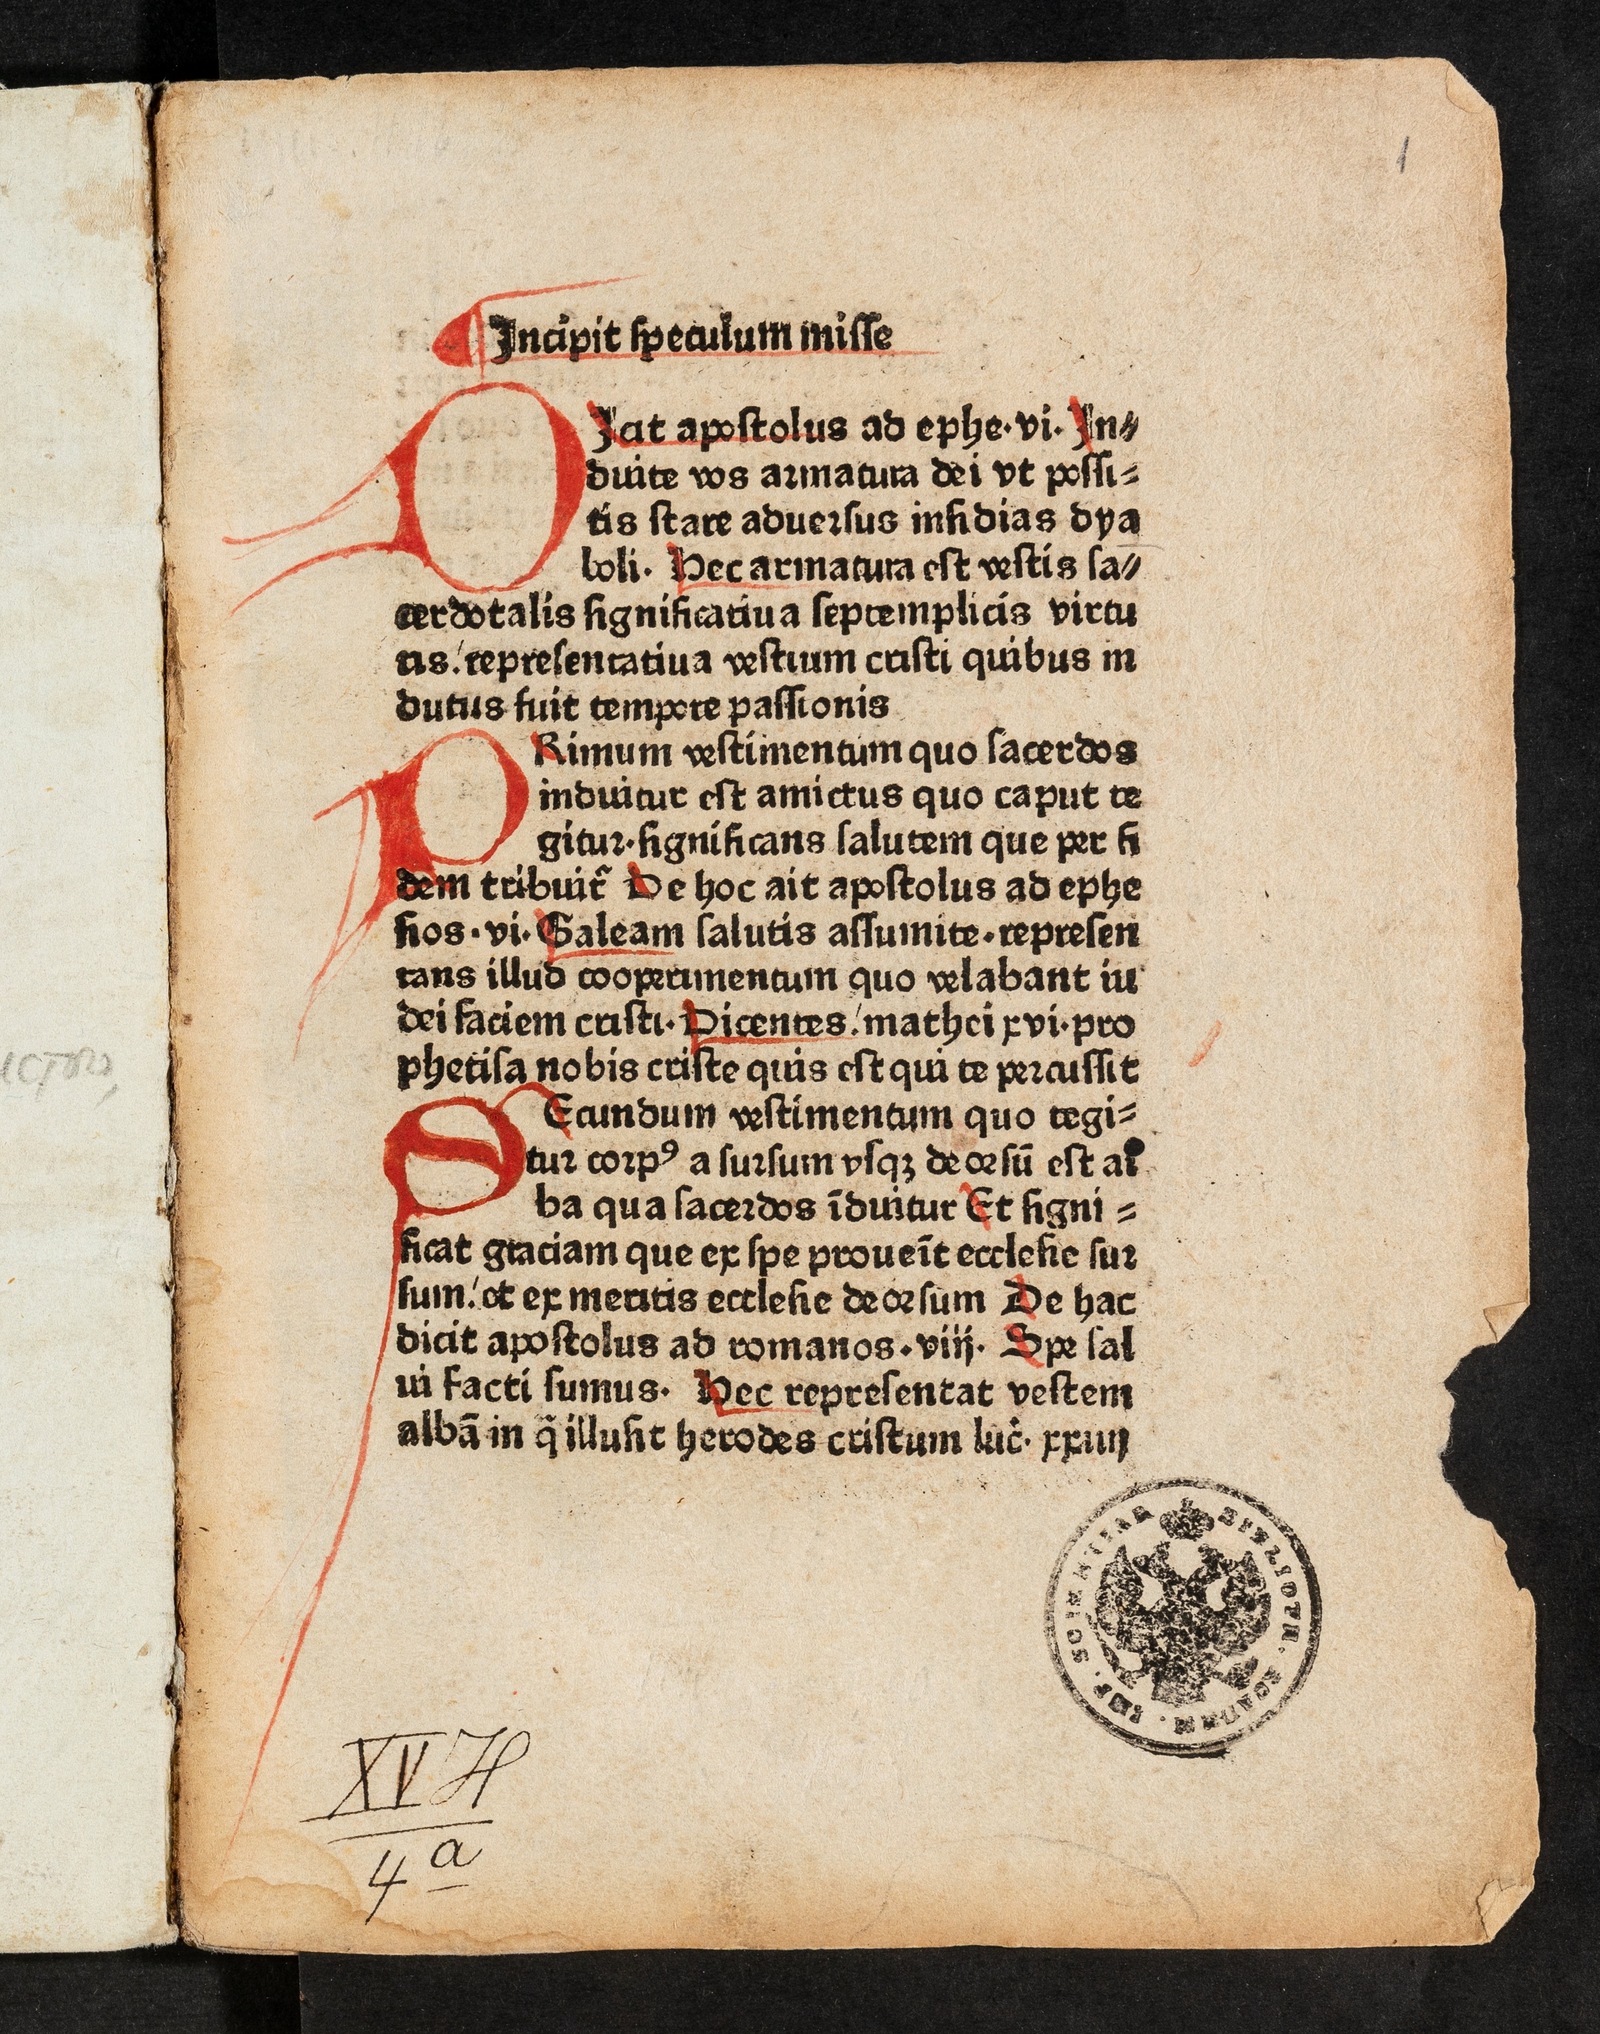 1
Incipit speculum misse
DIcit apostolus ad ephe·vi· In⸗
duite vos armatura dei vt possi⸗
tis stare aduersus insidias dya
boli· Hec armatura est vestis sa⸗
cerdotalis significatiua septemplicis virtu
tis:́ representatiua vestium cristi quibus in
dutus fuit tempore passionis
PRimum vestimentum quo sacerdos
induitur est amictus quo caput te
gitur·significans salutem que per fi
dem tribuit᷑ De hoc ait apostolus ad ephe
sios·vi· Galeam salutis assumite·represen
tans illud cooperimentum quo velabant iu
dei faciem cristi· Dicentes:́ mathei xvi·pro
phetisa nobis criste quis est qui te percussit
SEcundum vestimentum quo tegi⸗
tur corpꝰ a sursum vsqꝫ deorsū est al
ba qua sacerdos īduitur Et signi⸗
ficat graciam que ex spe proueīt ecclesie sur
sum:́ et ex meritis ecclesie deorsum De hac
dicit apostolus ad romanos·viij· Spe sal
ui facti sumus· Hec representat vestem
albā in q̄ illusit herodes cristum luc̄· xxiiij
BIBLIOTH. ACADEM. IMP. SCIENTIAR
XV H
4 a